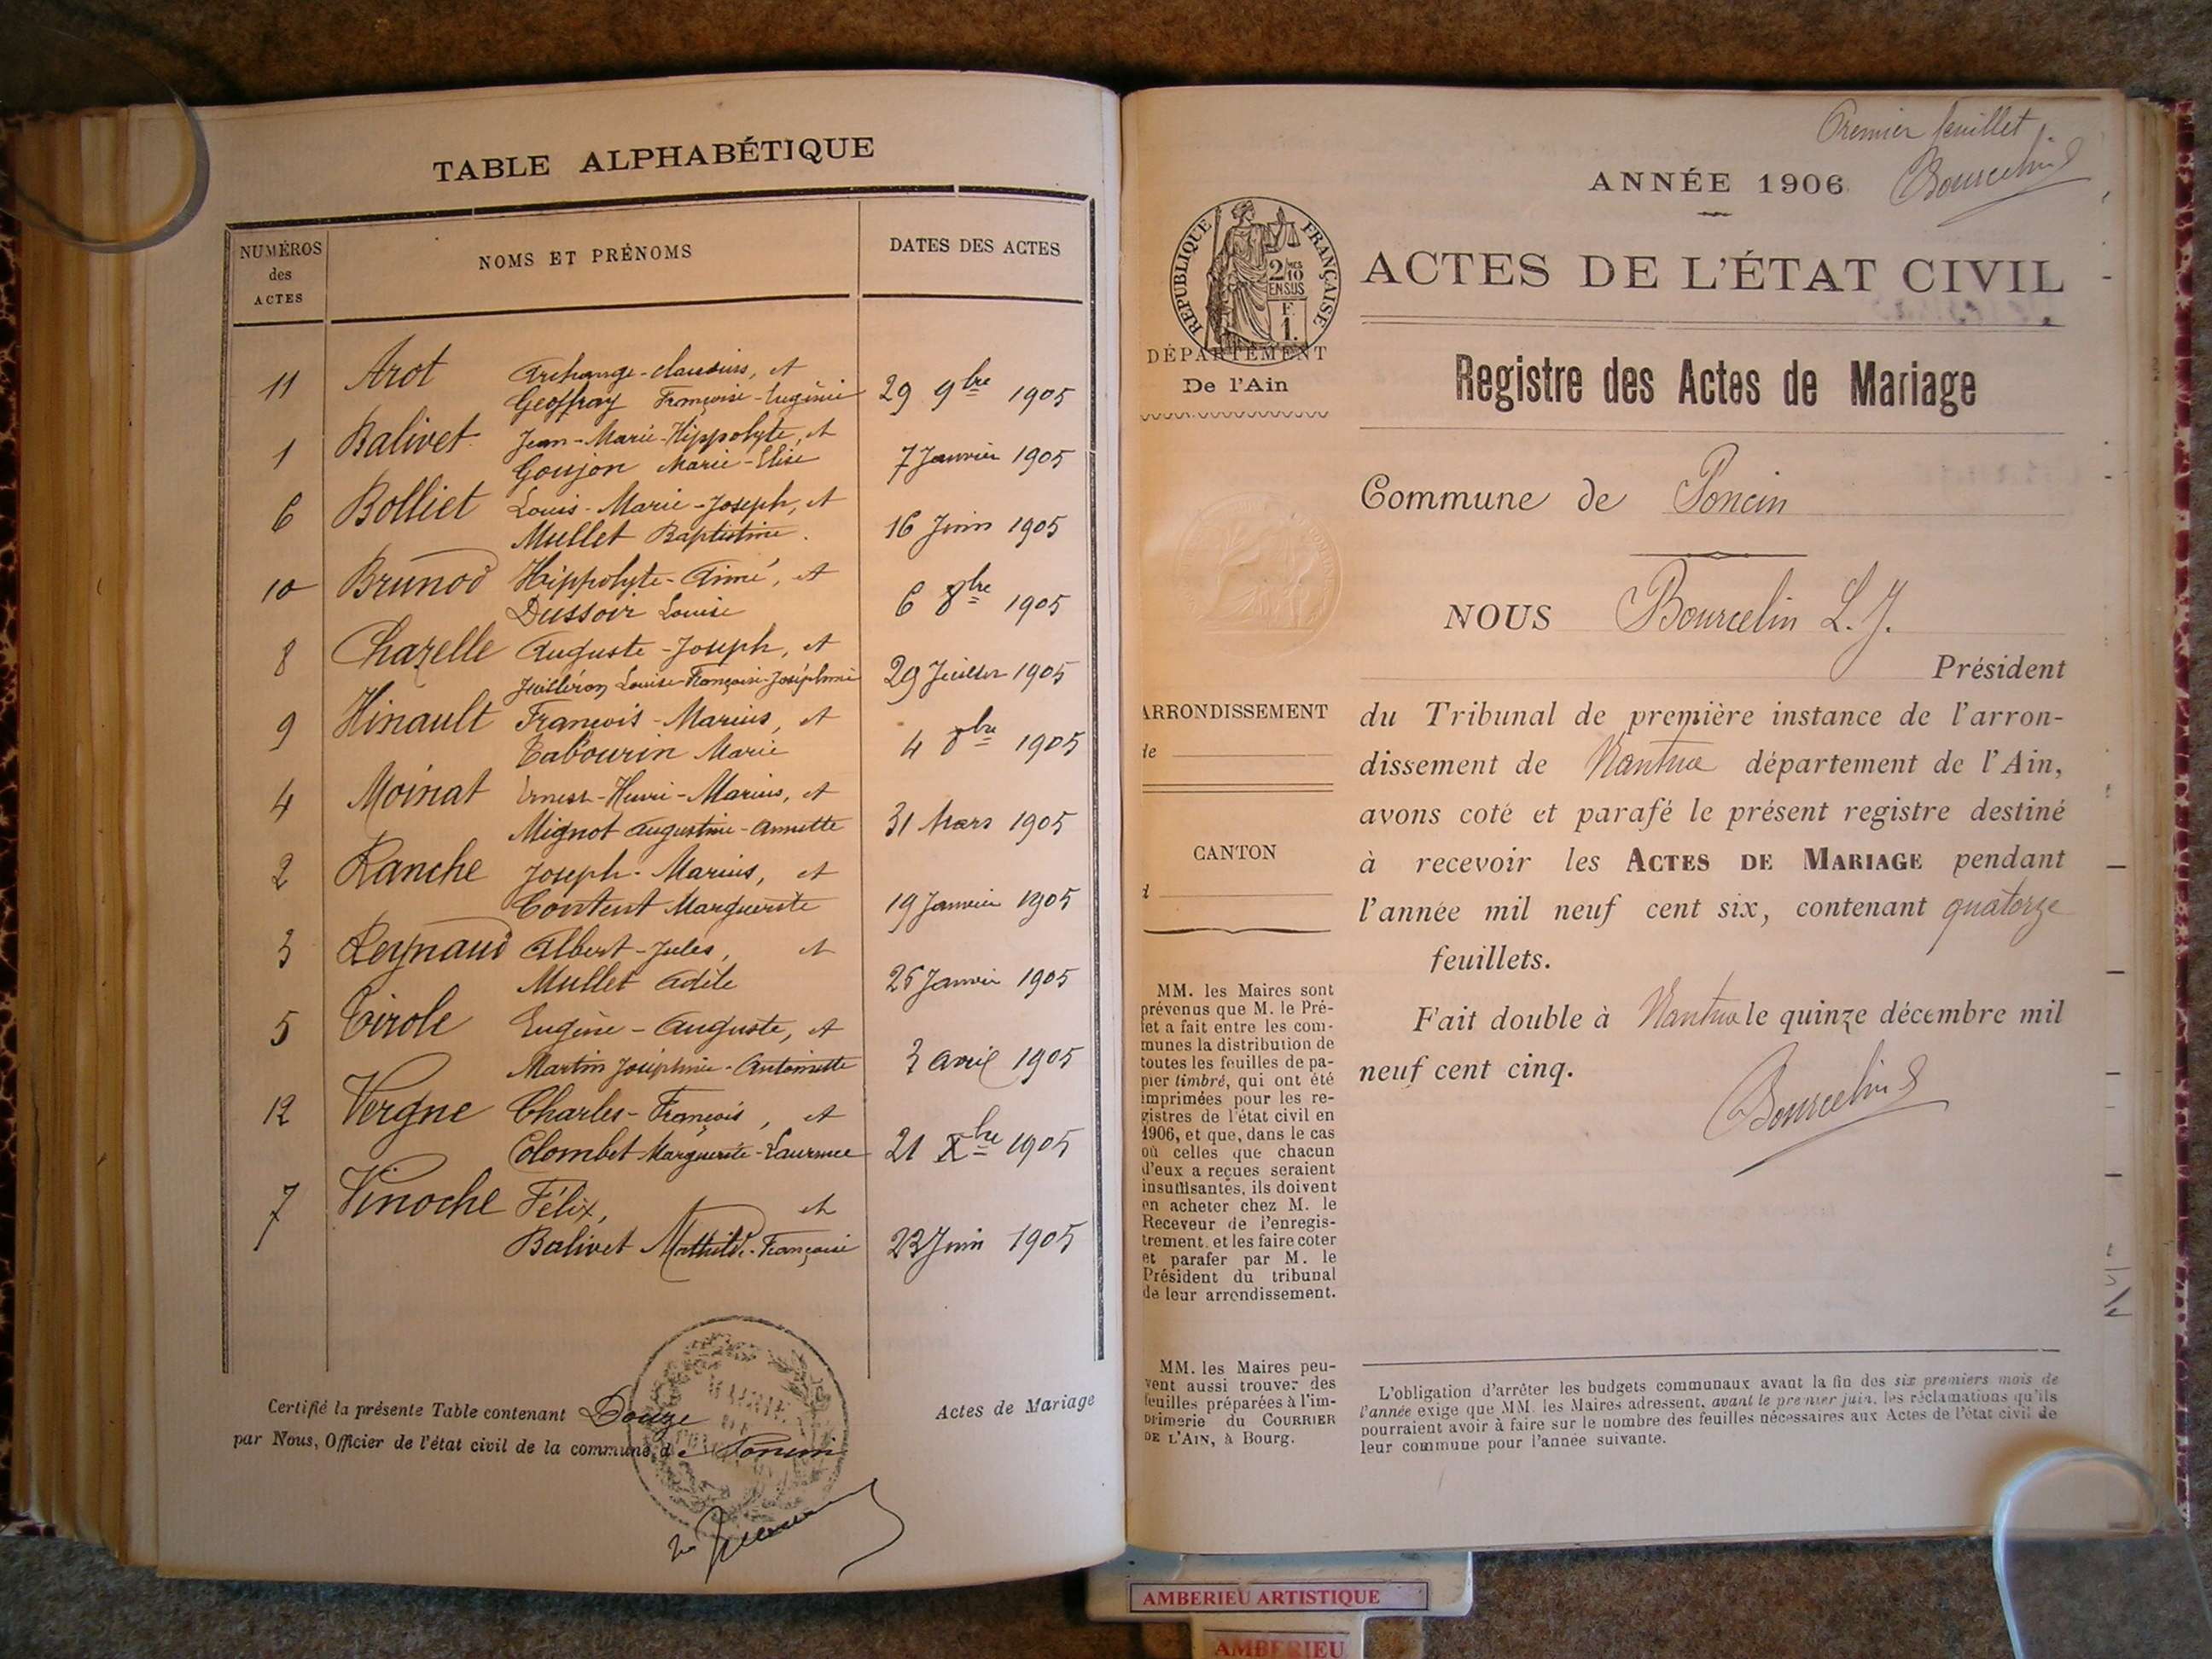 TABLE ALPHABÉTIQUE
NUMÉROS des ACTES
NOMS ET PRÉNOMS
DATES DES ACTES
11 Arot Archange-Claudius, et
Geoffray Françoise-Eugénie 29 9bre 1905
1 Balivet Jean-Marie-Hippolyte, et
Goujon Marie-Elise 7 Janvier 1905
6 Bolliet Louis-Marie-Joseph, et
Mullet Baptistine. 16 Juin 1905
10 Brunod Hippolyte-Aimé, et
Dussoir Louise 6 8bre 1905
8 Chazelle Auguste-Joseph, et
Juilléron Louise-Françoise-Joséphine 29 Juillet 1905
9 Hinault François-Marius, et
Tabourin Marie 4 8bre 1905
4 Moinat Ernest-Henri-Marius, et
Mignot Augustine-Annette 31 Mars 1905
2 Ranche Joseph-Marius, et
Content Marguerite 19 Janvier 1905
3 Reynaud Albert-Jules, et
Mullet Adèle 26 Janvier 1905
5 Tirole Eugène-Auguste, et
Martin Joséphine-Antoinette 3 avril 1905
12 Vergne Charles-François, et
Colombet Marguerite-Laurence 21 Xbre 1905
7 Vinoche Félix, et
Balivet Mathilde-Françoise 23 Juin 1905
Certifié la présente Table contenant Douze Actes de Mariage
par Nous, Officier de l'état civil de la commune de Poncin
Premier feuillet
Bourcelin
ANNÉE 1906
ACTES DE L'ÉTAT CIVIL
RÉPUBLIQUE FRANÇAISE
2/10 MES
EN SUS
F.
1.
DÉPARTEMENT
De l'Ain
Registre des Actes de Mariage
Commune de Poncin
NOUS Bourcelin L. J.
Président
du Tribunal de première instance de l'arron-
dissement de Nantua département de l'Ain,
avons coté et parafé le présent registre destiné
à recevoir les ACTES DE MARIAGE pendant
l'année mil neuf cent six, contenant quatorze
feuillets.
Fait double à Nantua le quinze décembre mil
neuf cent cinq.
Bourcelin
ARRONDISSEMENT
de
CANTON
d
MM. les Maires sont
prévenus que M. le Pré-
fet a fait entre les com-
munes la distribution de
toutes les feuilles de pa-
pier timbré, qui ont été
imprimées pour les re-
gistres de l'état civil en
1906, et que, dans le cas
où celles que chacun
d'eux a reçues seraient
insuffisantes, ils doivent
en acheter chez M. le
Receveur de l'enregis-
trement, et les faire coter
et parafer par M. le
Président du tribunal
de leur arrondissement.
MM. les Maires peu-
vent aussi trouver des
feuilles préparées à l'im-
primerie du COURRIER
DE L'AIN, à Bourg.
L'obligation d'arrêter les budgets communaux avant la fin des six premiers mois de
l'année exige que MM. les Maires adressent, avant le premier juin, les réclamations qu'ils
pourraient avoir à faire sur le nombre des feuilles nécessaires aux Actes de l'état civil de
leur commune pour l'année suivante.
AMBERIEU ARTISTIQUE
AMBERIEU